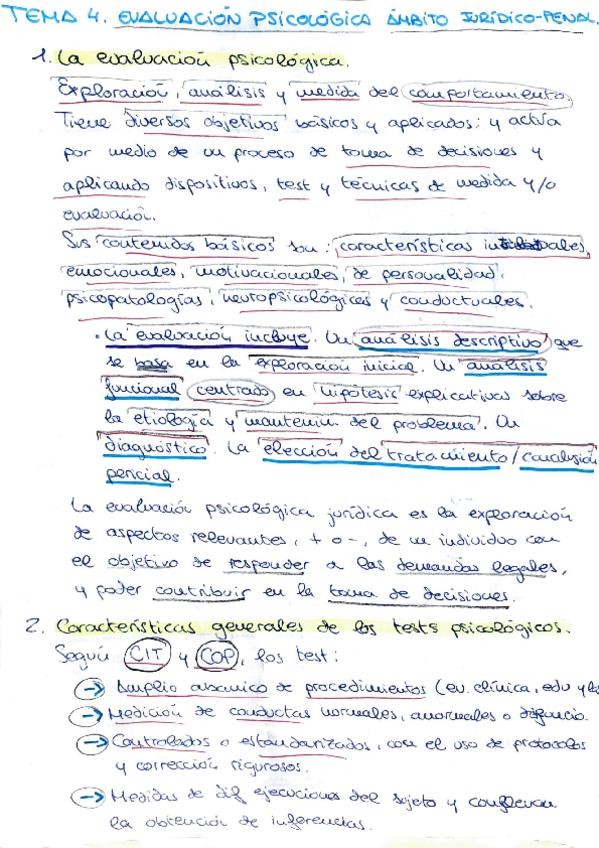 TEMA 4. EVALUACIÓN PSICOLÓGICA ÁMBITO JURÍDICO-PENAL.
1. La evaluación psicológica.
Exploración, análisis y medida del comportamiento.
Tiene diversos objetivos básicos y aplicados; y actúa
por medio de un proceso de toma de decisiones y
aplicando dispositivos, test y técnicas de medida y/o
evaluación.
Sus contenidos básicos son: características
emocionales, motivacionales, de personalidad,
psicopatologías, neuropsicológicas y conductuales.
• La evaluación incluye. Un análisis descriptivo que
se basa en la exploración inicial. Un análisis
funcional centrado en hipótesis explicativas sobre
la etiología y mantenim del problema. Un
diagnóstico. La elección del tratamiento/conclusión
pericial.
La evaluación psicológica jurídica es la exploración
de aspectos relevantes, + o -, de un individuo con
el objetivo de responder a las demandas legales,
y poder contribuir en la toma de decisiones.
2. Características generales de los tests psicológicos.
Según CIT y COP, los test:
→ Amplio abanico de procedimientos (ev. clínica, edu y
→ Medición de conductas normales, anormales o disfuncio.
→ Controlados o estandarizados, con el uso de protocolos
y corrección rigurosos.
→ Medidas de dif ejecuciones del sujeto y conllevan
la obtención de inferencias.